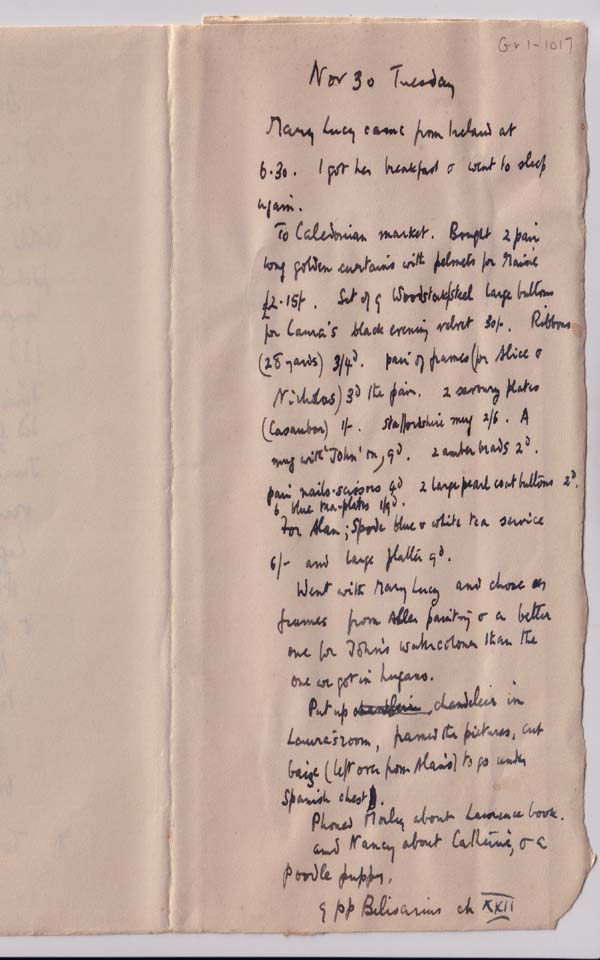 Gr 1-1017
Nov 30 Tuesday
Mary Lucy came from Ireland at
6.30. I got her breakfast & went to sleep
again.
To Caledonian market. Bought 2 pair
long golden curtains with pelmets for Maisie
£2.15/-. Set of 9 Woodstock steel large buttons
for Laura's black evening velvet 30/-. Ribbons
(28 yards) 3/4d. pair of frames (for Alice &
Nicholas) 3d the pair. 2 savoury plates
(Casaubon) 1/-. Staffordshire mug 2/6. A
mug with 'John' on, 9d. 2 amber beads 2d.
pair nails-scissors 9d 2 large pearl coat buttons 2d.
6 blue tea-plates 1/9d.
For Alan; Spode blue & white tea service
6/- and large platter 9d.
Went with Mary Lucy and chose
frames from Allen painting & a better
one for John's watercolour than the
one we got in Lugano.
Put up chandeleir in
Laura's room, framed the pictures, cut
baize (left over from Alan's) to go under
Spanish chest.
Phoned Morley about Lawrence book.
and Nancy about Catherine, & a
poodle puppy.
9 pp Belisarius ch XXII